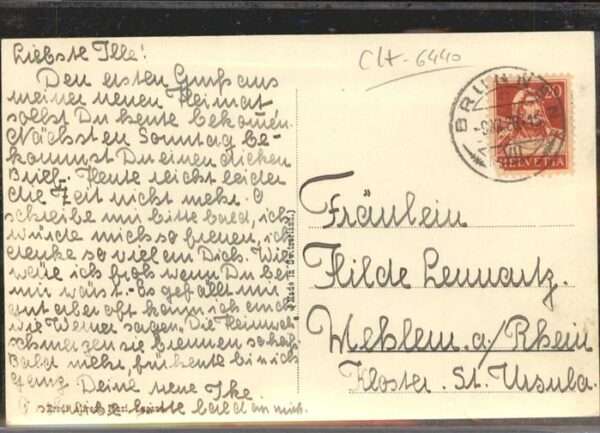 Liebste Ille!
Den ersten Gruß aus
meiner neuen Heimat
sollst Du heute bekommen.
Nächsten Sonntag be-
kommst Du einen dicken
Brief. Heute reicht leider
die Zeit nicht mehr. O
schreibe mir bitte bald, ich
würde mich so freuen, ich
denke so viel an Dich. Wie
wäre ich froh wenn Du bei
mir wärst. Es gefällt mir
gut aber oft kann ich auch
wie Werner sagen. Die Heimweh
schmerzen sie brennen so heiß.
Bald mehr, für heute bin ich
Ganz Deine neue Ike.
O schreibe bitte bald an mich.
CH-6440
BRUNNEN
20
HELVETIA
(Made in Switzerland.)
Fräulein
Hilde Lennartz.
Mehlem. a/Rhein
Kloster. St. Ursula.